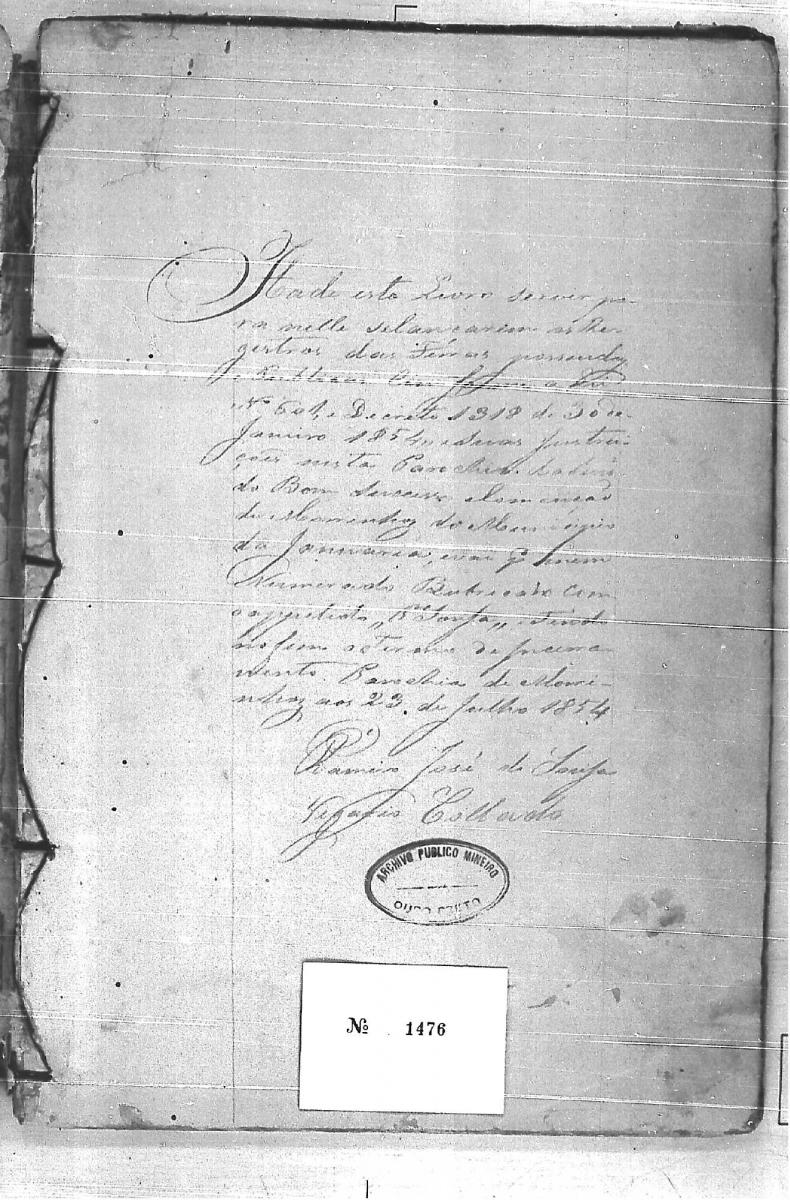 Hade este Livro servir pa-
ra nelle se lançarem os Re-
gistros das Terras possuidas
Conforme a Lei
Nº 601, e Decreto 1318 de 30 de
Janeiro 1854, e suas Instru-
ções nesta Parochia
do Bom Successo e Conceição
de Morrinhos do Municipio
da Januaria, e vai
Numerado Rubricado com
o appellido "Souza" e tendo
no fim o Termo de Incerra-
mento. Parochia de Morri-
nhos aos 23 de Julho 1854
Ramiro José de Souza
Vigario Collado
ARCHIVO PUBLICO MINEIRO
OURO PRETO
Nº 1476